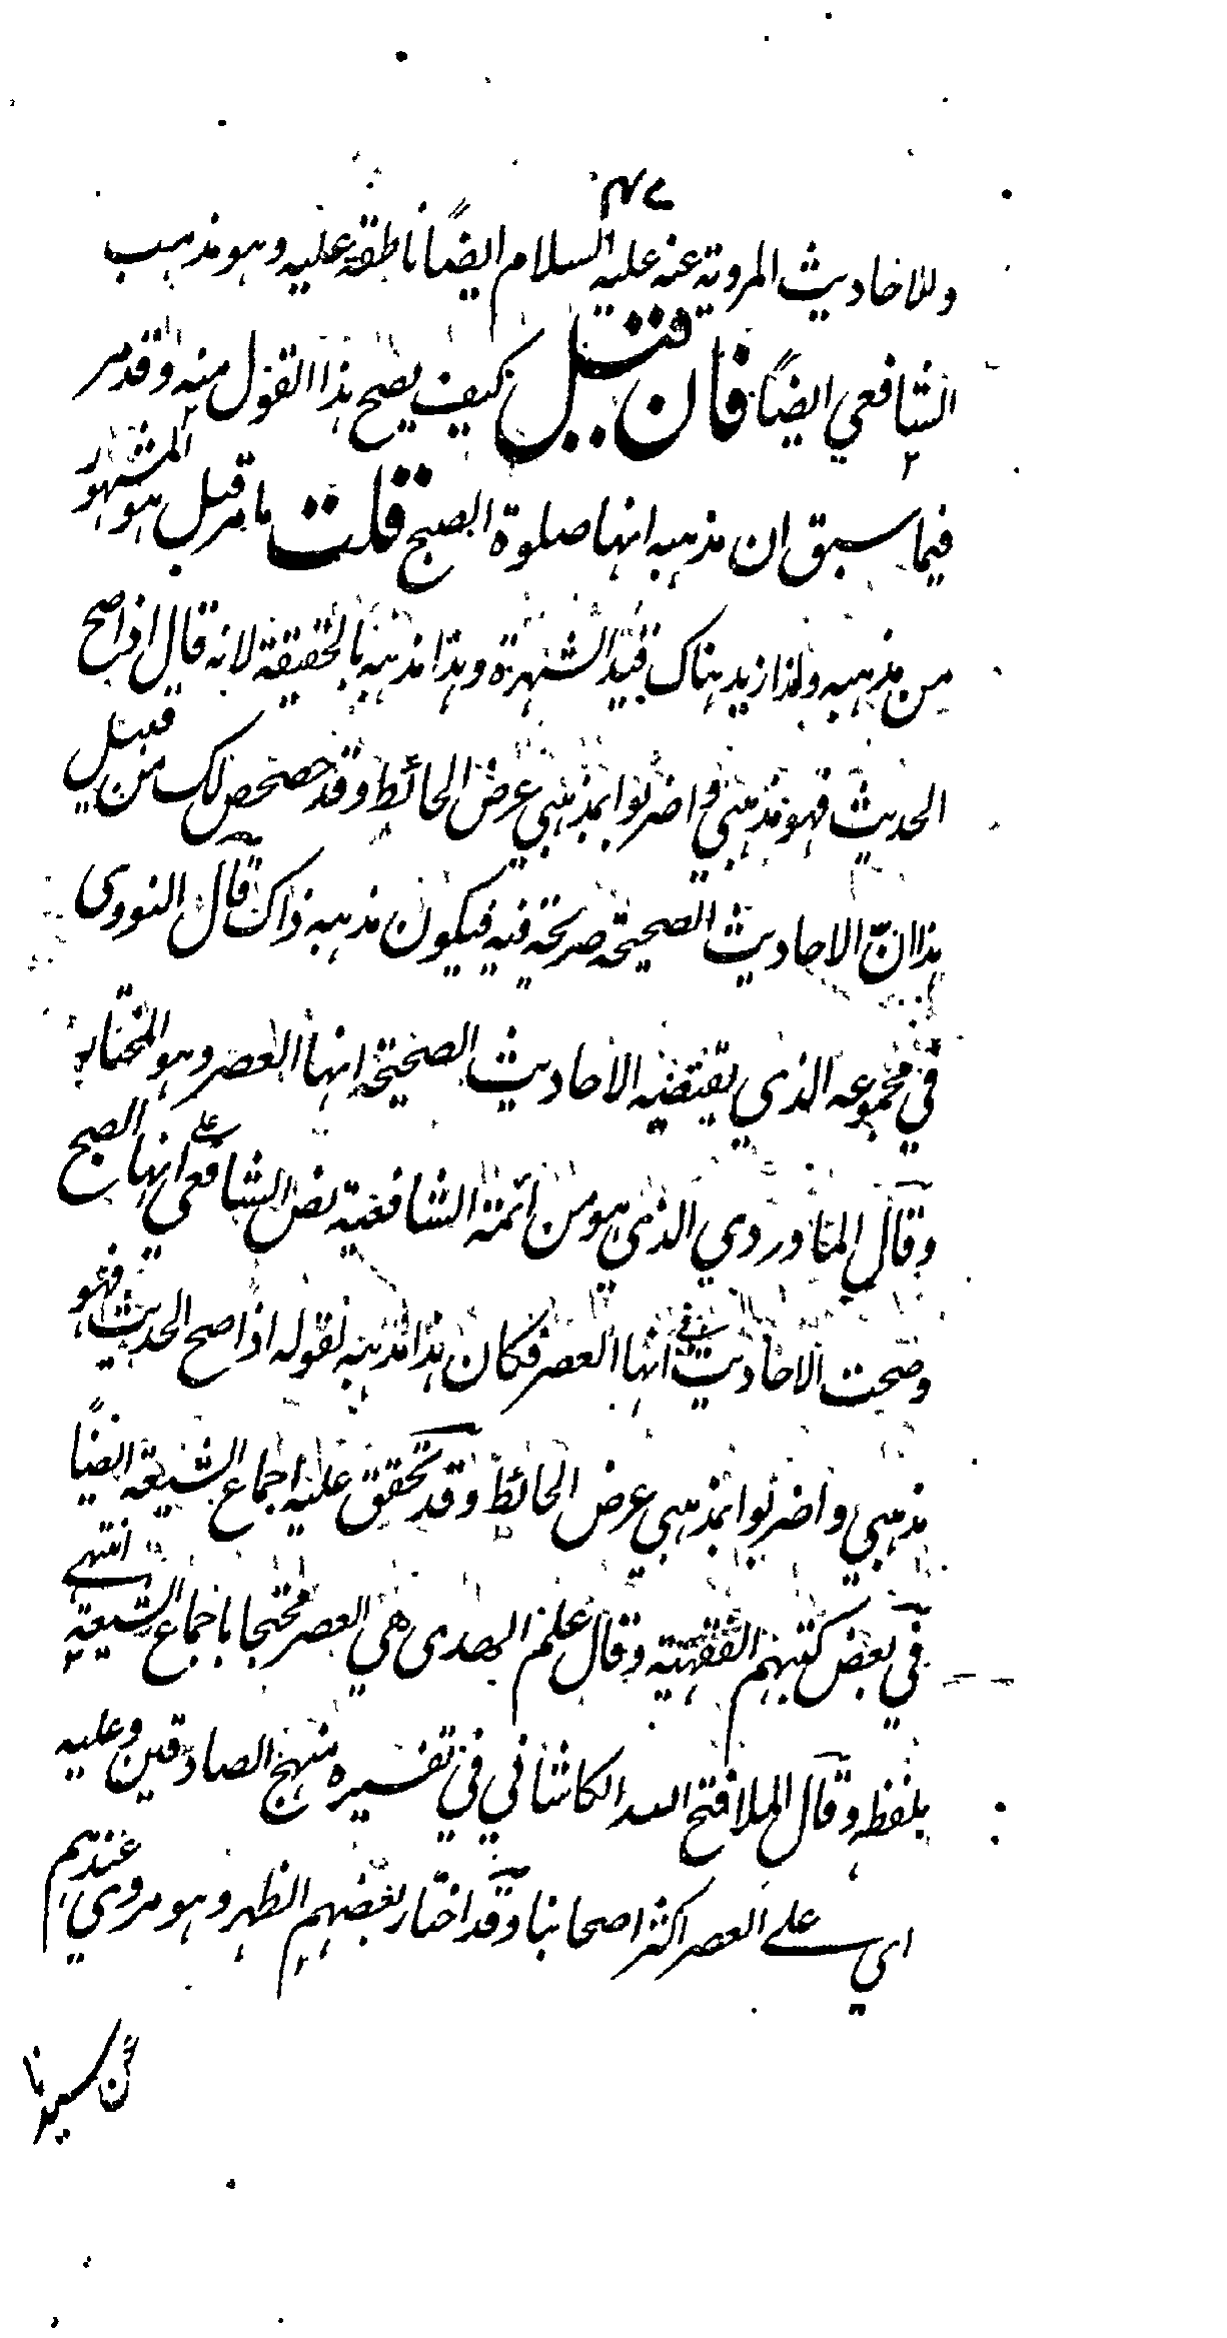 وللاحاديث المروية عنه عليه السلام ايضاً ناطقة عليه وهو مذهب
الشافعي ايضاً فان قيل كيف يصح هذا القول منه وقد مر
فيما سبق ان مذهبه انها صلوة الصبح قلت ما مر قبل هو المشهور
من مذهبه ولذا زيد هناك قيد الشهرة وهذا مذهبه بالحقيقة لانه قال اذا صح
الحديث فهو مذهبي واضربوا بمذهبي عرض الحائط وقد حصحص لك من قبيل
هذا ان الاحاديث الصحيحة صريحة فيه فيكون مذهبه ذاك قال النووى
في مجموعه الذي يقتضيه الاحاديث الصحيحة انها العصر وهو المختار
وقال الماوردي الذي هو من ائمة الشافعية نص الشافعي على انها الصبح
وصحت الاحاديث في انها العصر فكان هذا مذهبه لقوله اذا صح الحديث فهو
مذهبي واضربوا بمذهبي عرض الحائط وقد تحقق عليه اجماع الشيعة ايضاً
في بعض كتبهم الفقهية وقال علم الهدى هي العصر محتجا باجماع الشيعة انتهى
بلفظه وقال الملا فتح الله الكاشاني في تفسيره منهج الصادقين وعليه
اي على العصر اكثر اصحابنا وقد اختار بعضهم الظهر وهو مروي عندهم
عن سيدنا